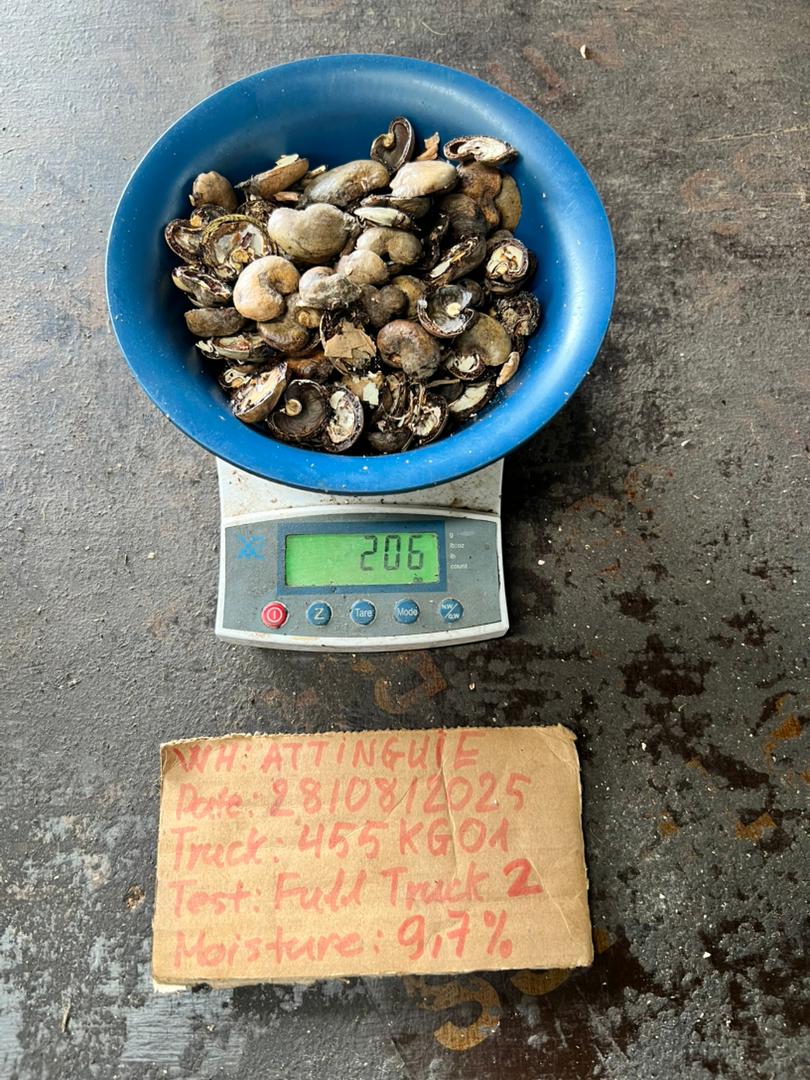 206
g
lb:oz
lb
count
Z
Tare
Mode
N.W/G.W
WH: ATTINGUIE
Date: 28/08/2025
Truck: 455 KG01
Test: Full Truck 2
Moisture: 9,7%